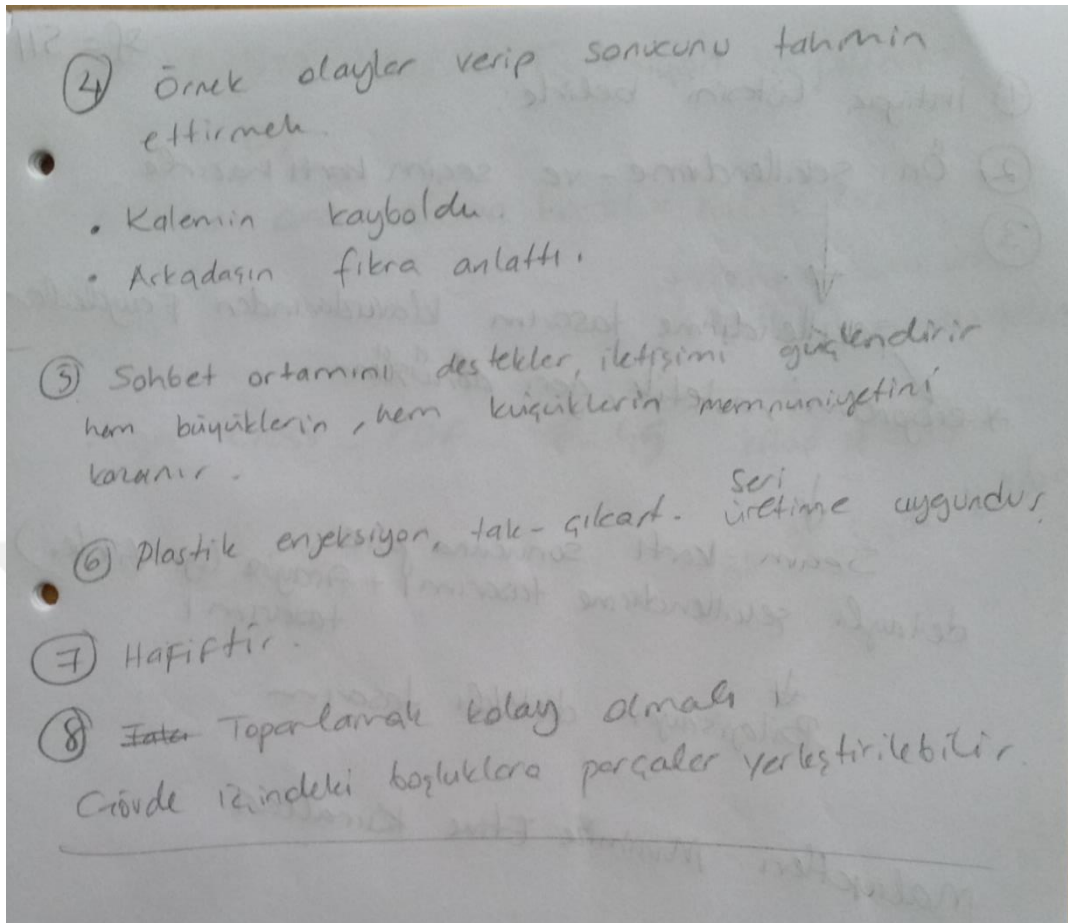 ④ Örnek olaylar verip sonucunu tahmin
ettirmek.
• Kalemin kayboldu.
• Arkadaşın fıkra anlattı.
⑤ Sohbet ortamını destekler, iletişimi güçlendirir
hem büyüklerin, hem küçüklerin memnuniyetini
kazanır.
⑥ Plastik enjeksiyon, tak-çıkart. seri üretime uygundur.
⑦ Hafiftir.
⑧ Toparlamak kolay olmalı
Gövde içindeki boşluklara parçalar yerleştirilebilir.